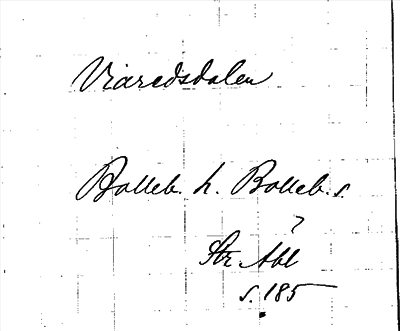 Viaredsdalen
Bolleb. h. Bolleb. s.
?
Str Abl
s. 185